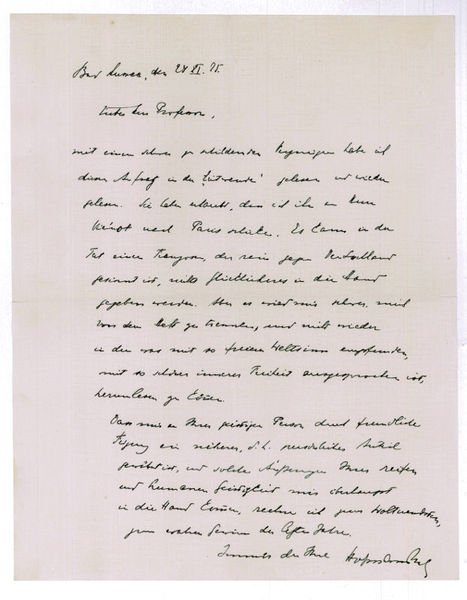 Bad Aussee, den 28 XI. 25.
Lieber Herr Professor,
mit einem schwer zu schildernden Vergnügen habe ich
diesen Aufsatz in der gelesen und wieder
gelesen. Sie haben erlaubt, dass ich ihn an
nach Paris schicke. Es kann in der
Tat einem Franzosen, der rein gegen Deutschland
gesinnt ist, nichts glücklicheres in die Hand
gegeben werden. Aber es wird mir schwer, mich
von dem Heft zu trennen, und nicht wieder
in dem was mit so freiem Weltsinn empfunden,
mit so schöner innerer Freiheit ausgesprochen ist,
herumlesen zu können.
Dass mir an Ihrer geistigen Person durch freundliche
Fügung ein näherer, d.h. persönlicher Anteil
gewährt ist, und solche Äußerungen Ihrer reifen
und humanen Geistigkeit mir überhaupt
in die Hand kommen, rechne ich zum
zum wahren Gewinn der letzten Jahre.
Immer der Ihre Hofmannsthal